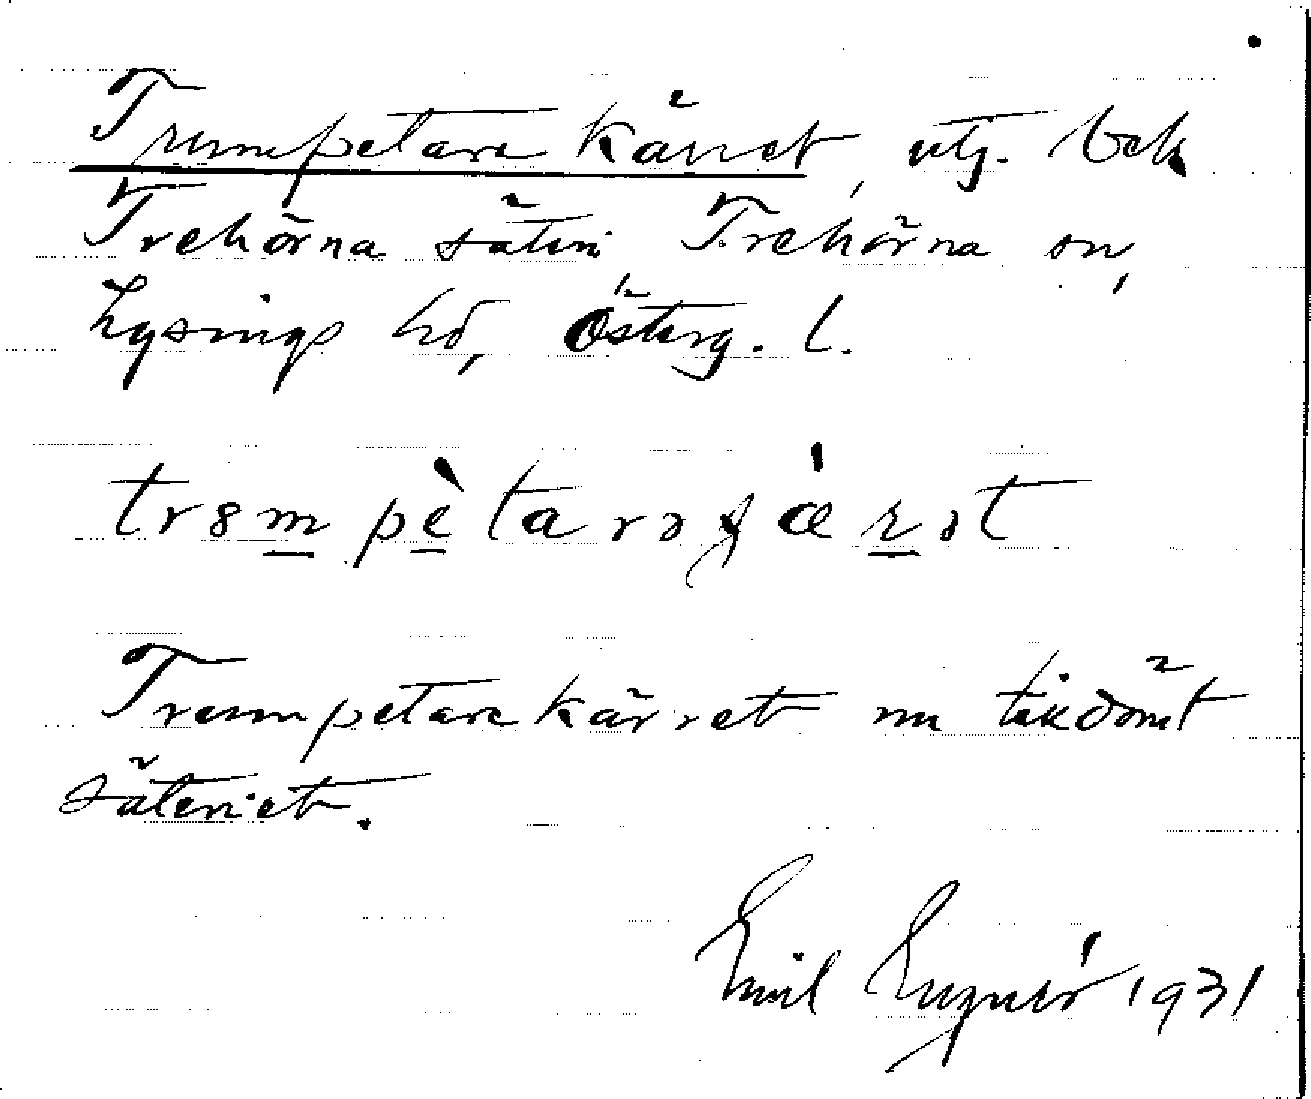 Trumpetarekärret, utj. bek
Trehörna säteri Trehörna sn,
Lysings hd, Österg. l.
tr8mpètarəʃæ̀rət
Trumpetarekärret nu tikdömt
säteriet.
Emil 1931